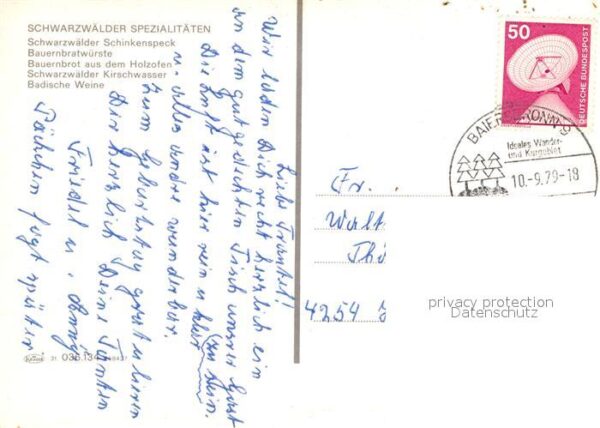 SCHWARZWÄLDER SPEZIALITÄTEN
Schwarzwälder Schinkenspeck
Bauernbratwürste
Bauernbrot aus dem Holzofen
Schwarzwälder Kirschwasser
Badische Weine
Wir laden Dich recht herzlich ein
an dem gutgedeckten Tisch unser Gast
zu sein.
Die Luft ist hier rein u.
u. alles andre wunderbar.
Zum Geburtstag gratulieren
Dir herzlich Deine Tanten
Friedel u.
Päckchen folgt später
50
DEUTSCHE BUNDESPOST
BAIERSBRONN
Ideales Wander-
und Kurgebiet
10.-9.79-18
Fr.
Walt
Thi
4254
privacy protection
Datenschutz
Krüger
21 036.134